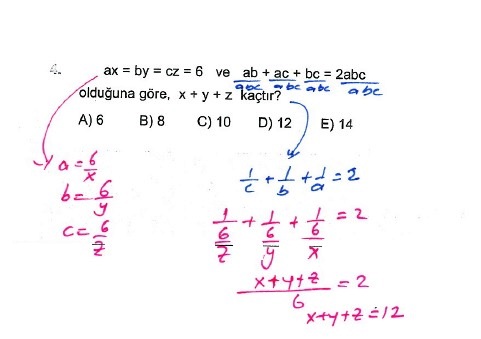 4. ax = by = cz = 6 ve ab + ac + bc = 2abc
abc abc abc abc
olduğuna göre, x + y + z kaçtır?
A) 6 B) 8 C) 10 D) 12 E) 14
a = 6/x
b = 6/y
c = 6/z
1/c + 1/b + 1/a = 2
1/(6/z) + 1/(6/y) + 1/(6/x) = 2
(x+y+z)/6 = 2
x+y+z = 12